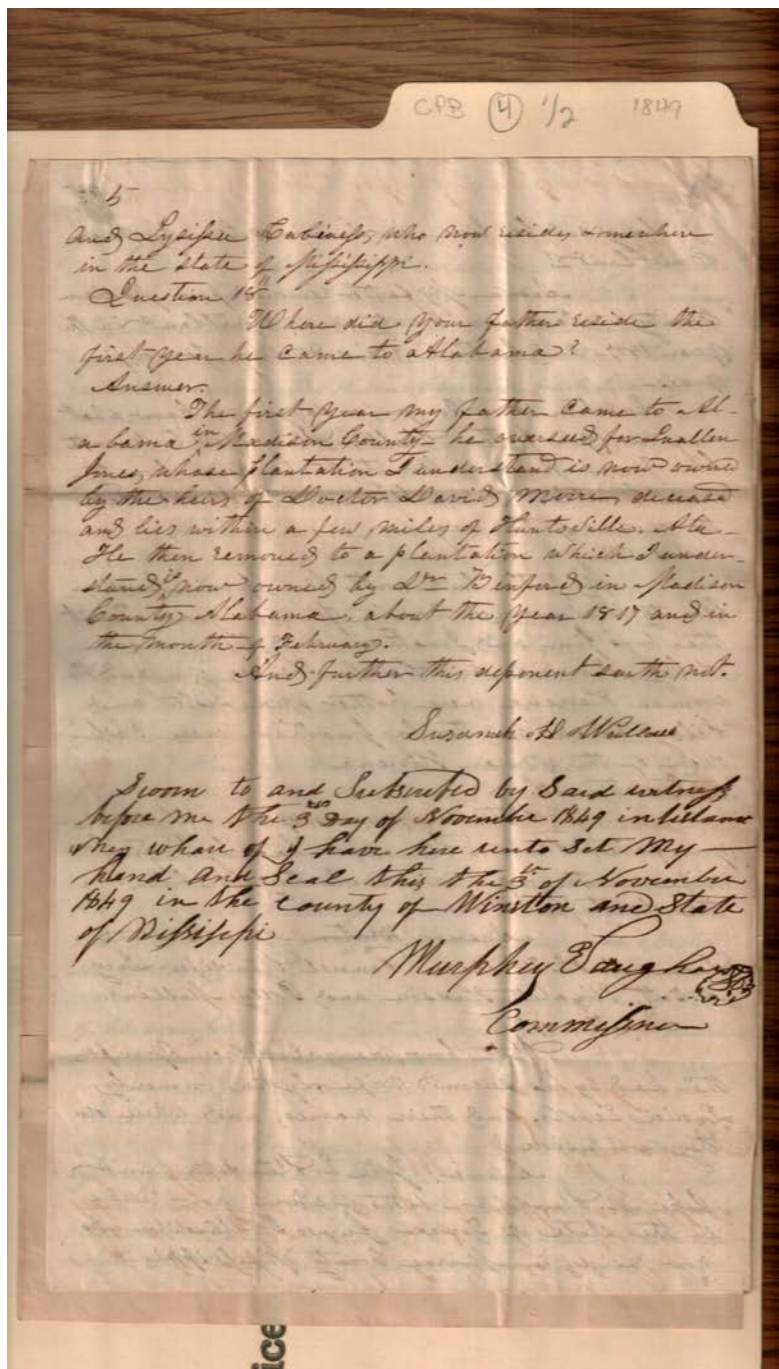 CPB 4 1/2 1849
5
and Lysissee Cabiness, who now resides somewhere
in the state of Mississippi.
Question 18th
Where did your father reside the
first year he came to Alabama?
Answer.
The first year my father came to Al-
abama in Madison County he overseed for Luallen
Jones, whose plantation I understand is now owned
by the heirs of Doctor David Moore, deceased
and lies within a few miles of Huntsville. Ala-
He then removed to a plantation which I under-
stand is now owned by Dr. Benford in Madison
County, Alabama, about the year 1817 and in
the month of February.
And further this deponent saith not.
Susanah H
Sworn to and Subscribed by Said witness
before me the 3rd Day of November 1849 in
whare of I have here unto Set My
hand And Seal this the 3 of November
1849 in the county of Winston and State
of Missippi
Murphey
Commissiner
ice